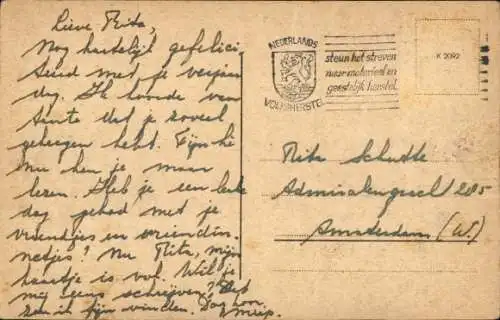 Lieve Rita,
Nog hartelijk gefelici-
teerd met je verjaar
dag. Ik hoorde van
tante dat je zoveel
gekregen hebt. Fijn hè
nu ken je maar
lezen. Heb je een leuke
dag gehad met je
vriendjes en vriendin
netjes? Nu Rita, mijn
kaartje is vol. Wil je
mij eens schrijven? Het
zou ik fijn vinden. Dag hoor
Miep.
NEDERLANDS
VOLKSHERSTEL
steun het streven
naar materieel en
geestelijk herstel
K 2092
Rita Schutte
Admiralengracht 205
Amsterdam (W.)